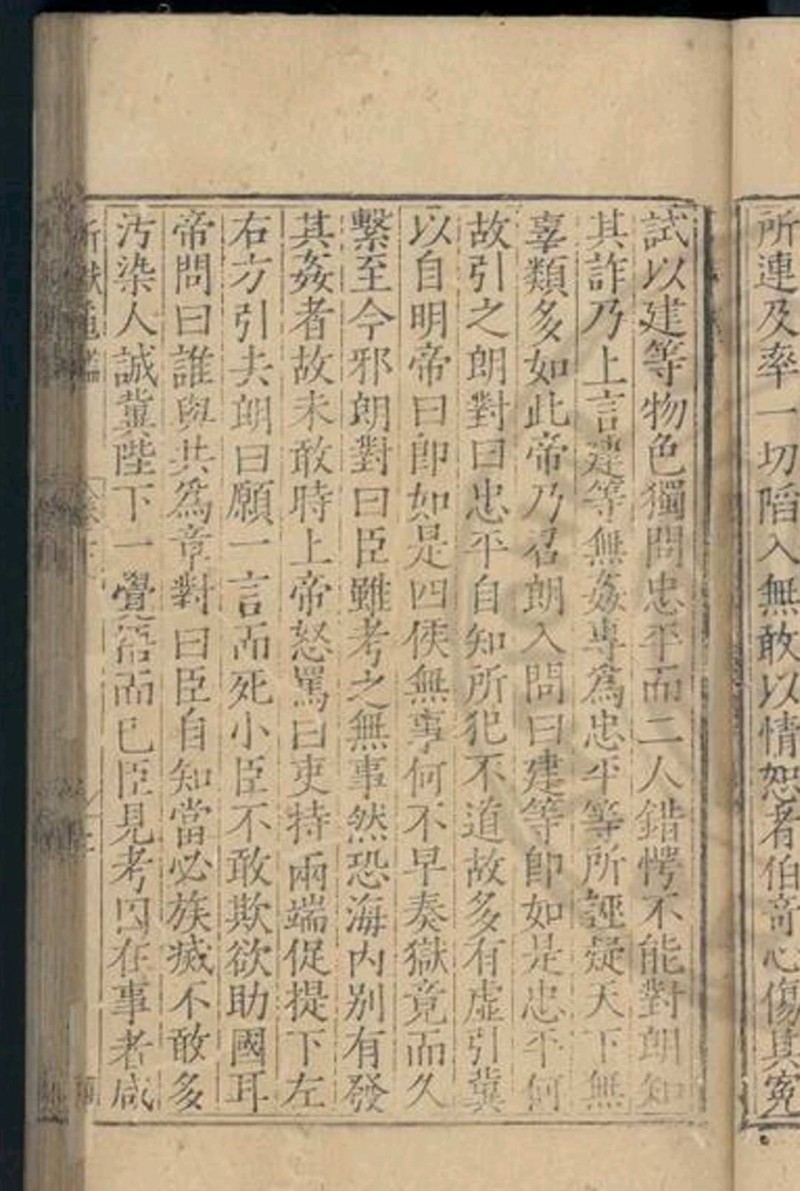 所連及率一切陷入無敢以情恕者伯奇心傷其寃
試以建等物色獨問忠平而二人錯愕不能對朗知
其詐乃上言建等無姦專爲忠平等所誣疑天下無
辜類多如此帝乃召朗入問曰建等卽如是忠平何
故引之朗對曰忠平自知所犯不道故多有虛引冀
以自明帝曰卽如是四侯無事何不早奏獄竟而久
繫至今邪朗對曰臣雖考之無事然恐海內別有發
其姦者故未敢時上帝怒罵曰吏持兩端促提下左
右方引去朗曰願一言而死小臣不敢欺欲助國耳
帝問曰誰與共爲章對曰臣自知當必族滅不敢多
汚染人誠冀陛下一覺寤而已臣見考囚在事者咸